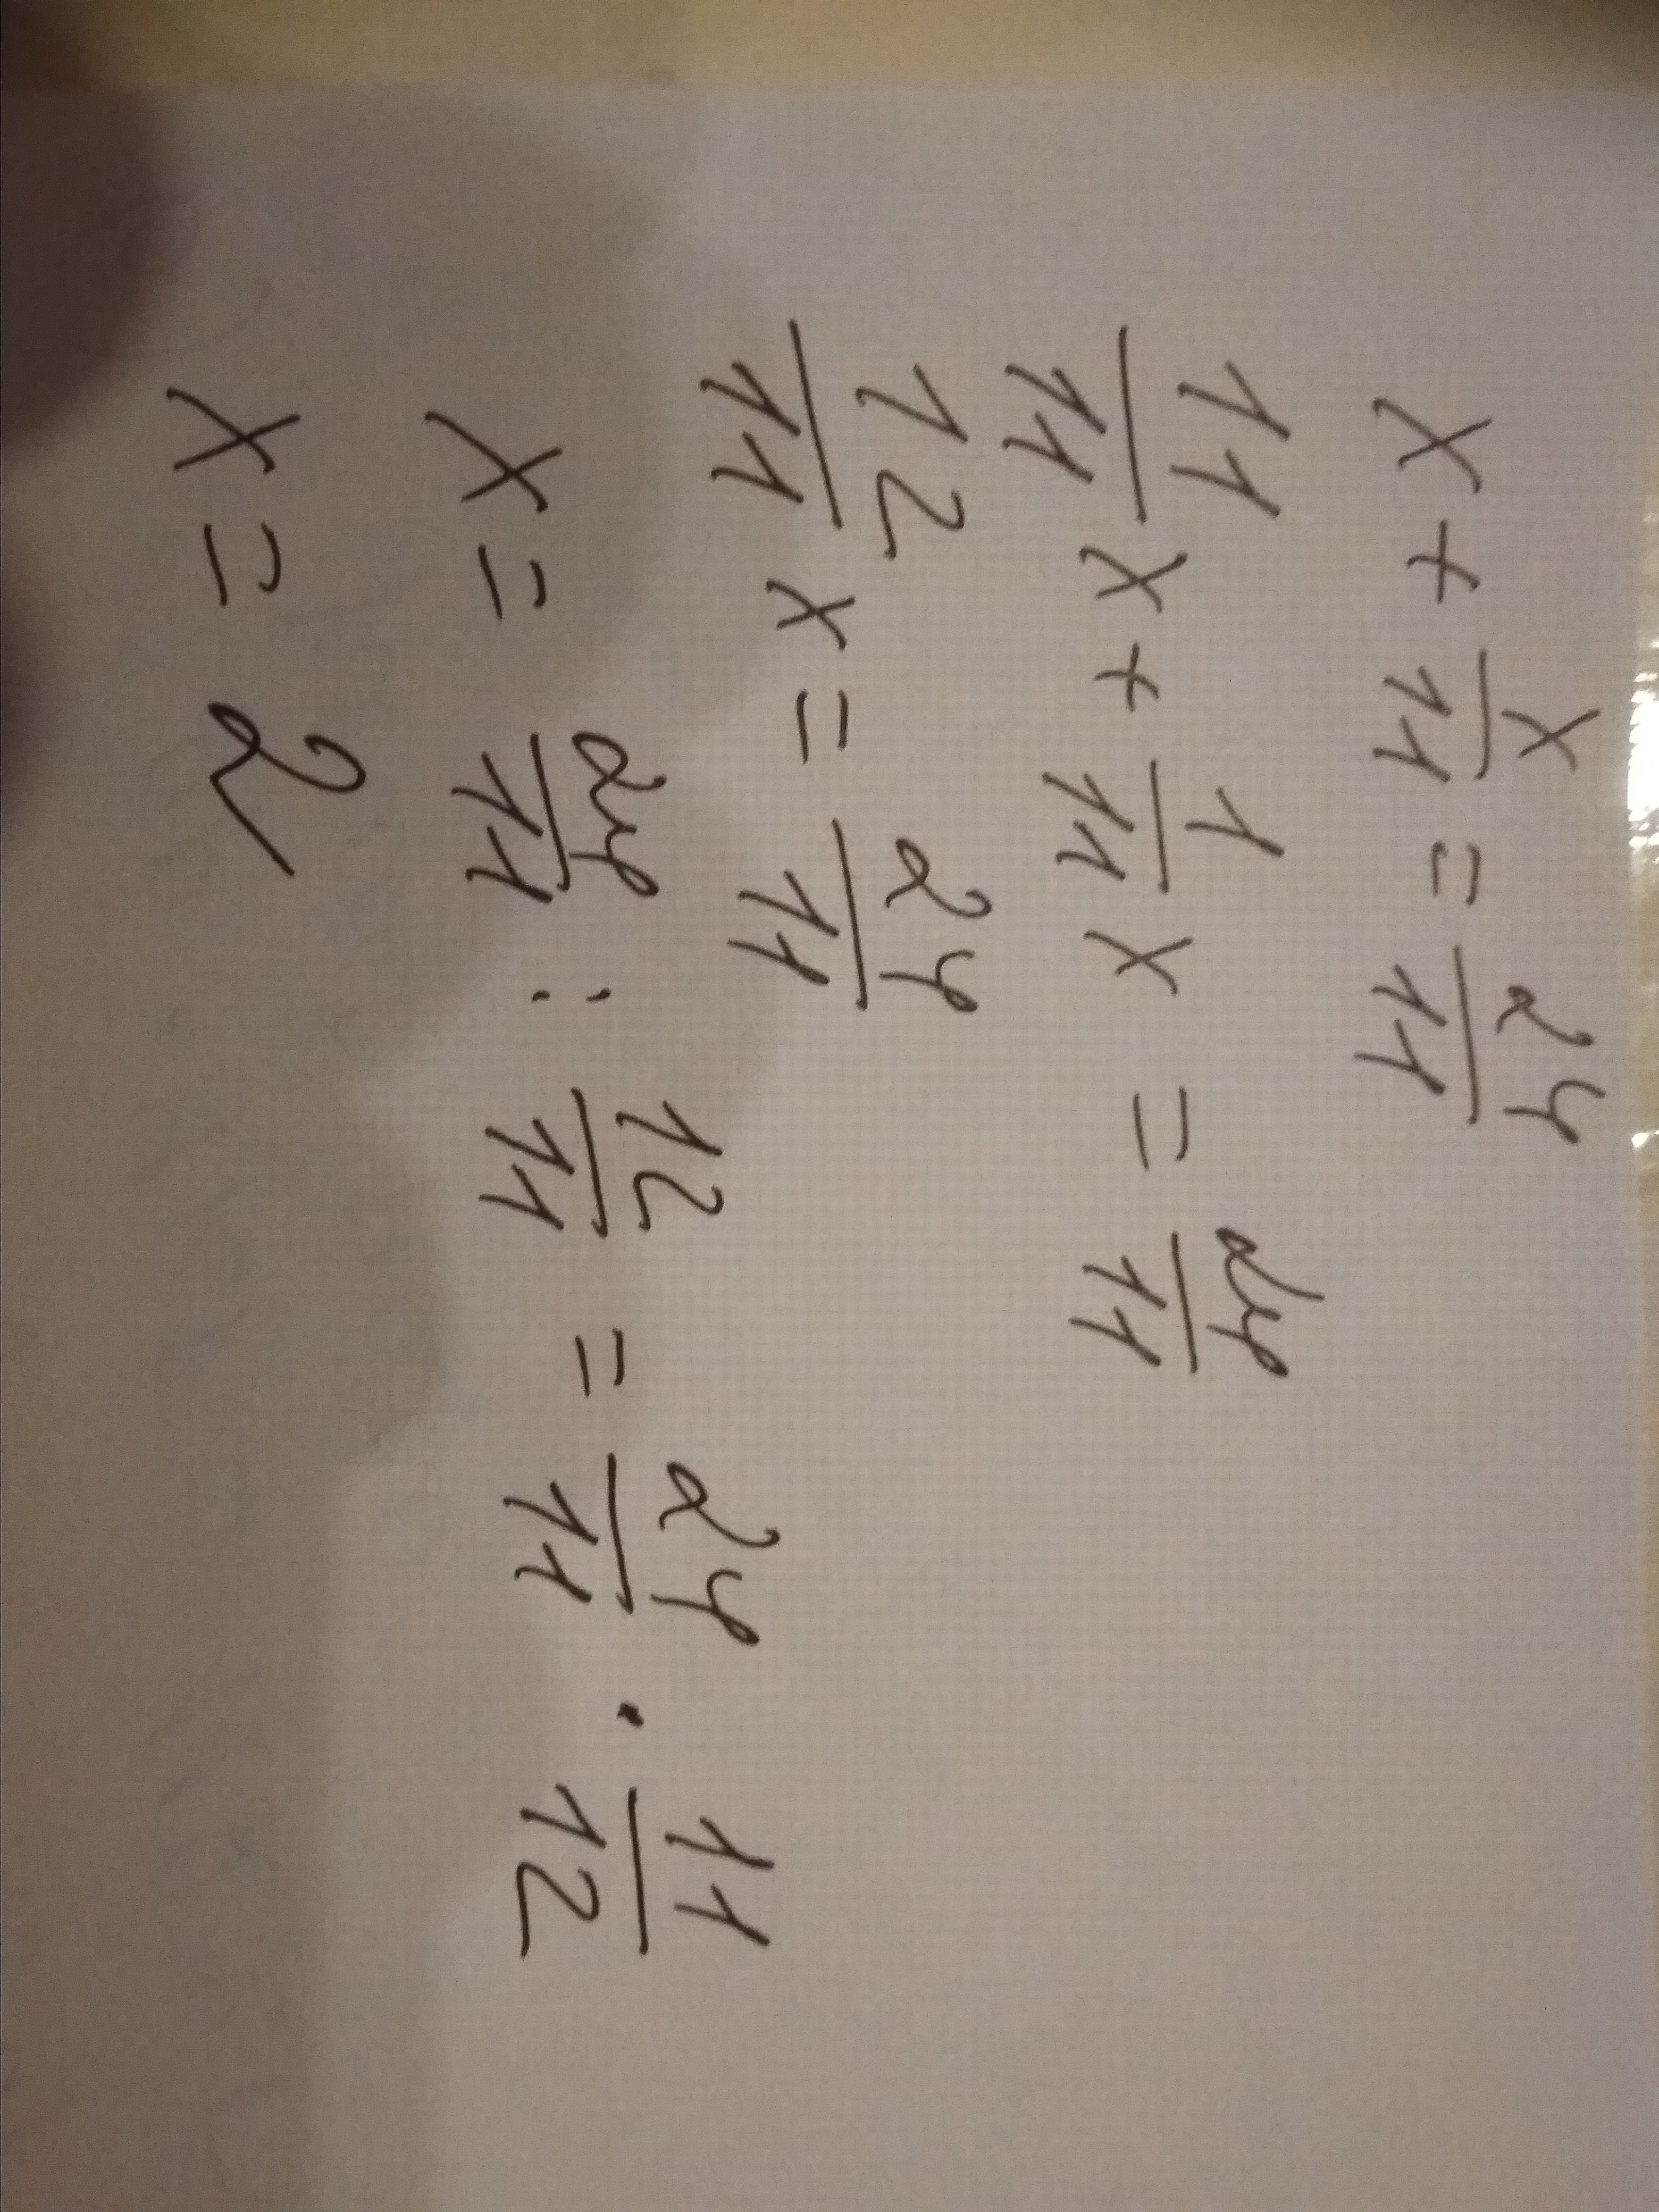 x + x/11 = 24/11
11/11 x + 1/11 x = 24/11
12/11 x = 24/11
x = 24/11 : 12/11 = 24/11 · 11/12
x = 2